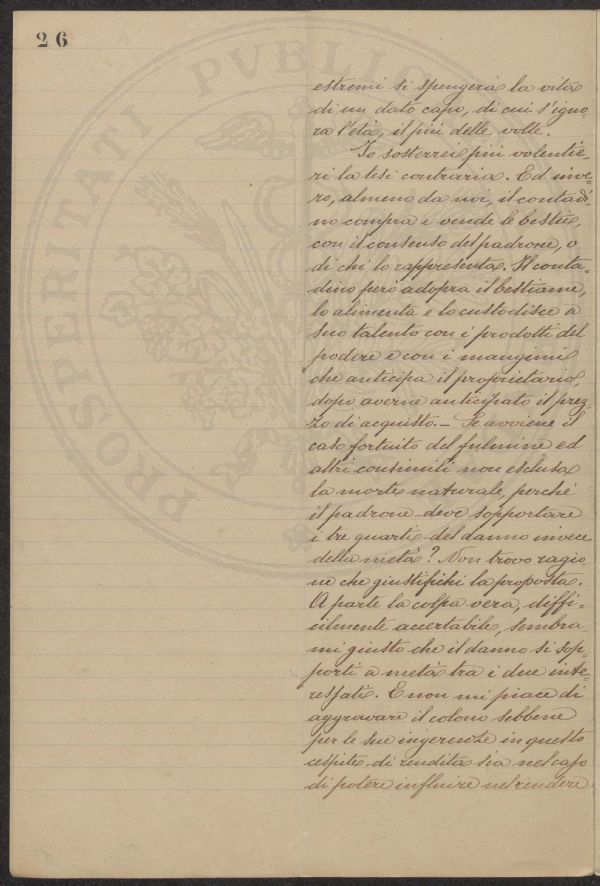 26
PROSPERITATI PVBLICAE
estremi si spengerà la vita
di un dato capo, di cui s'igno-
ra l'età, il più delle volte.
Io sosterrei più volentie-
ri la tesi contraria. Ed inve-
ro, almeno da noi, il contadi-
no compra e vende le bestie,
con il consenso del padrone, o
di chi lo rappresenta. Il conta-
dino però adopra il bestiame,
lo alimenta e lo custodisce a
suo talento con i prodotti del
podere e con i mangimi
che anticipa il proprietario,
dopo averne anticipato il prez-
zo di acquisto. — Se avviene il
caso fortuito del fulmine ed
altri consimili non esclusa
la morte naturale, perchè
il padrone deve sopportare
i tre quarti del danno invece
della metà? Non trovo ragio
ne che giustifichi la proposta.
A parte la colpa vera, diffi-
cilmente accertabile, sembra-
mi giusto che il danno si sop-
porti a metà tra i due inte-
ressati. E non mi piace di
aggravare il colono sebbene
per le sue ingerenze in questo
cespite di rendita sia nel caso
di potere influire nel rendere